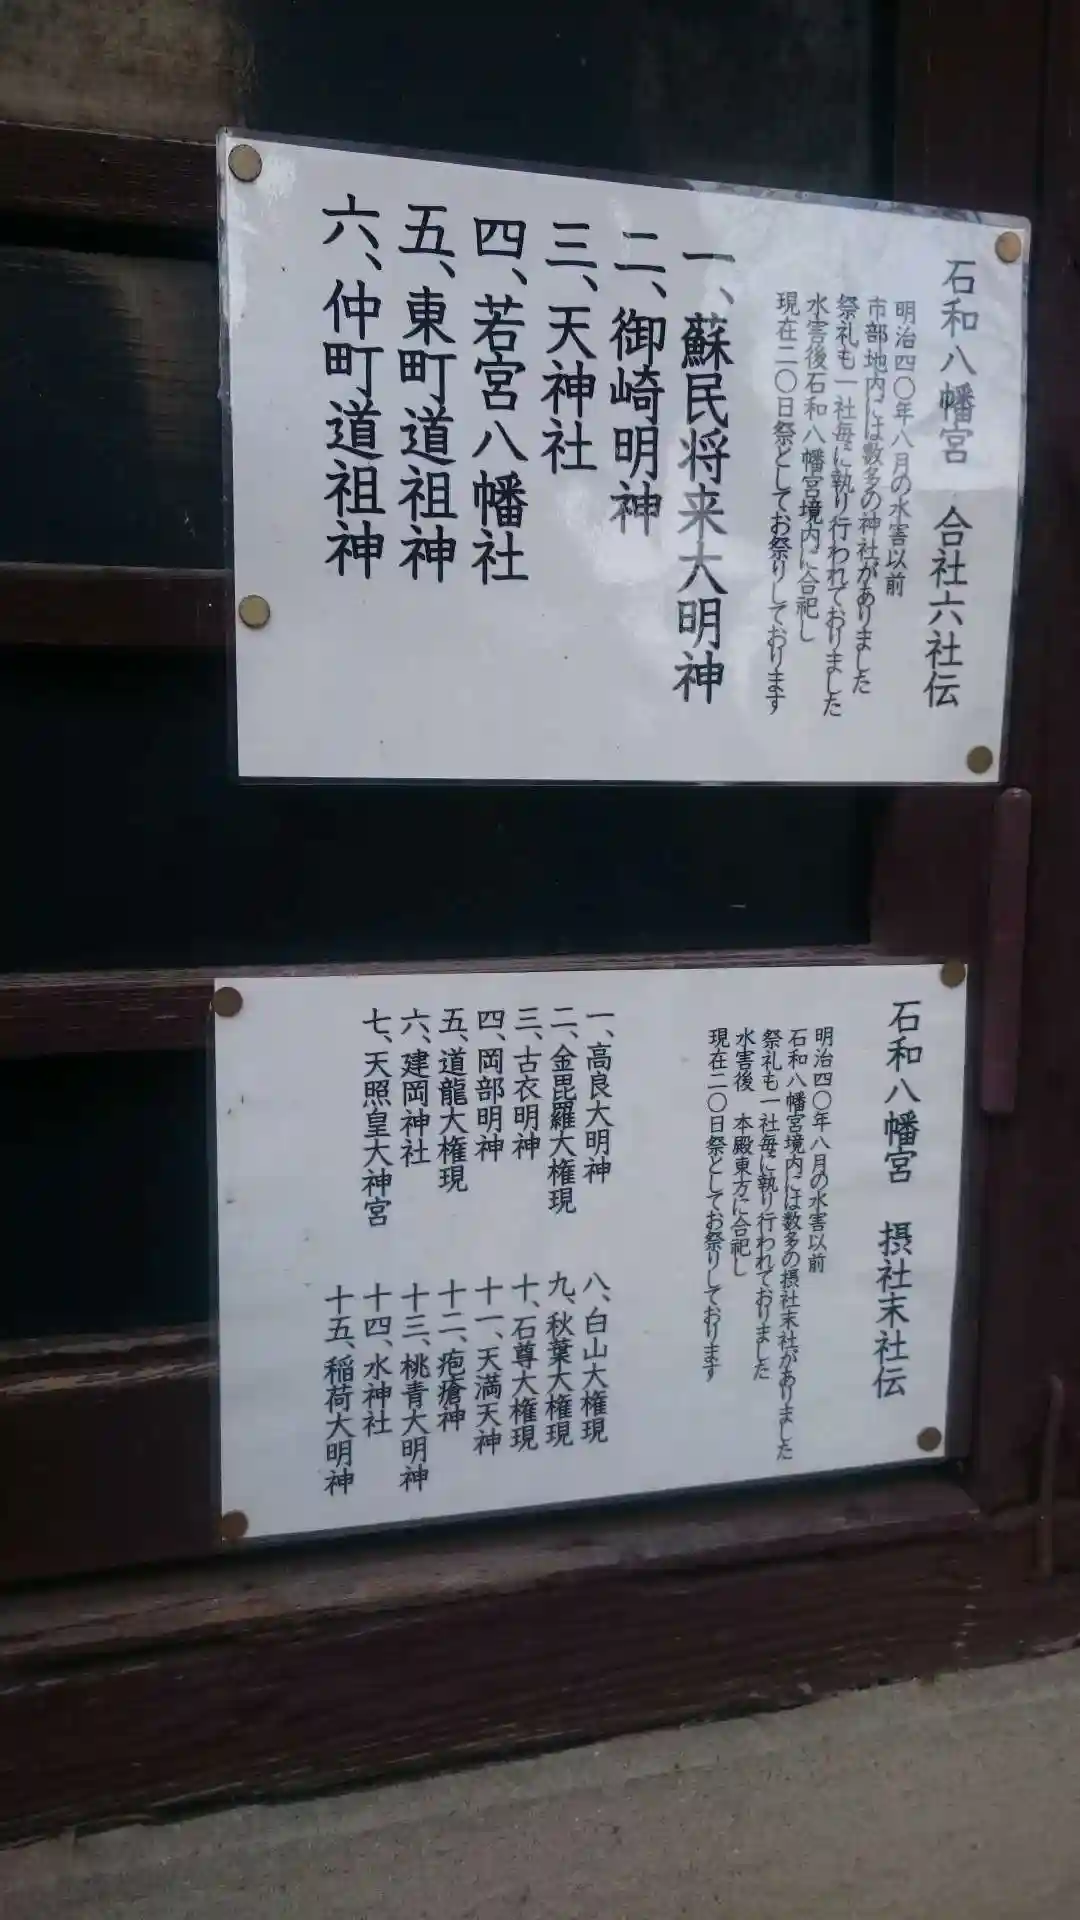 石和八幡宮 合社六社伝
明治四〇年八月の水害以前
市部地内には数多の神社がありました
祭礼も一社毎に執り行われておりました
水害後石和八幡宮境内に合祀し
現在二〇日祭としてお祭りしております
一、蘇民将来大明神
二、御崎明神
三、天神社
四、若宮八幡社
五、東町道祖神
六、仲町道祖神
石和八幡宮 摂社末社伝
明治四〇年八月の水害以前
石和八幡宮境内には数多の摂社末社がありました
祭礼も一社毎に執り行われておりました
水害後 本殿東方に合祀し
現在二〇日祭としてお祭りしております
一、高良大明神
二、金毘羅大権現
三、古衣明神
四、岡部明神
五、道龍大権現
六、建岡神社
七、天照皇大神宮
八、白山大権現
九、秋葉大権現
十、石尊大権現
十一、天満天神
十二、疱瘡神
十三、桃青大明神
十四、水神社
十五、稲荷大明神